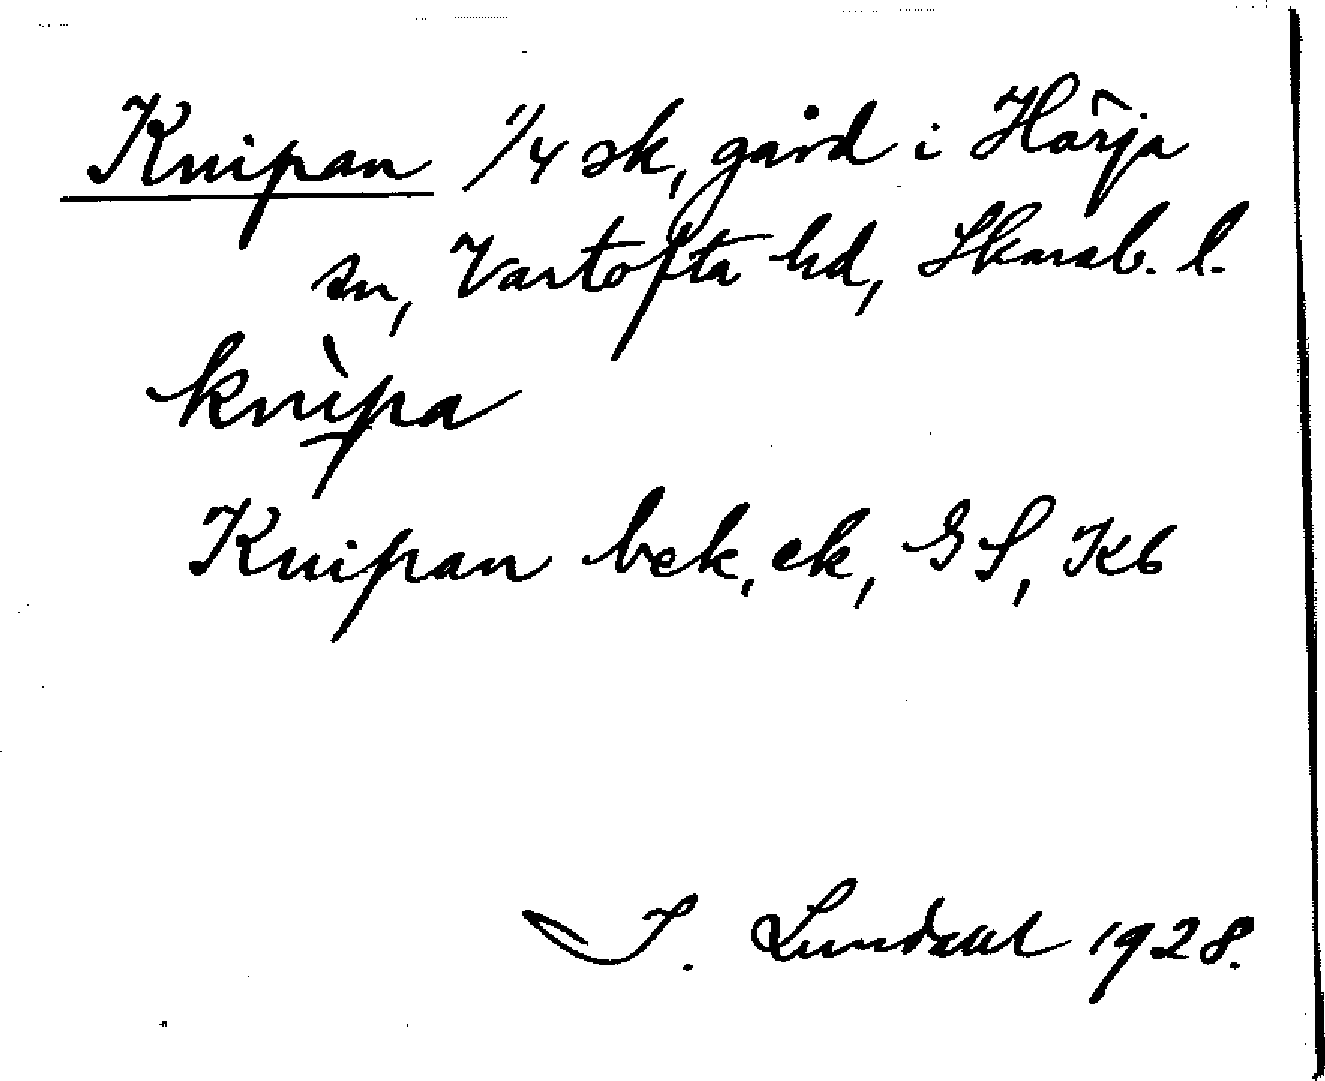 Knipan 1/4 sk, gård i Hörja
sn, Vartofta hd, Skarab. l.
knìpa
Knipan bek, ek, GS, Kb
I. Lundahl 1928.